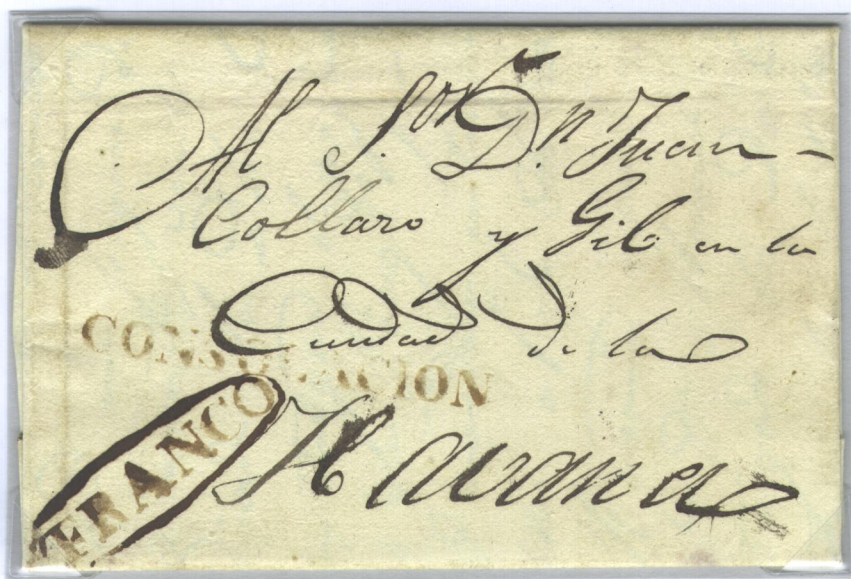 Al S.or Dn. Juan
Collazo y Gil en la
Ciudad de la
CONSOLACION
FRANCO
Havana